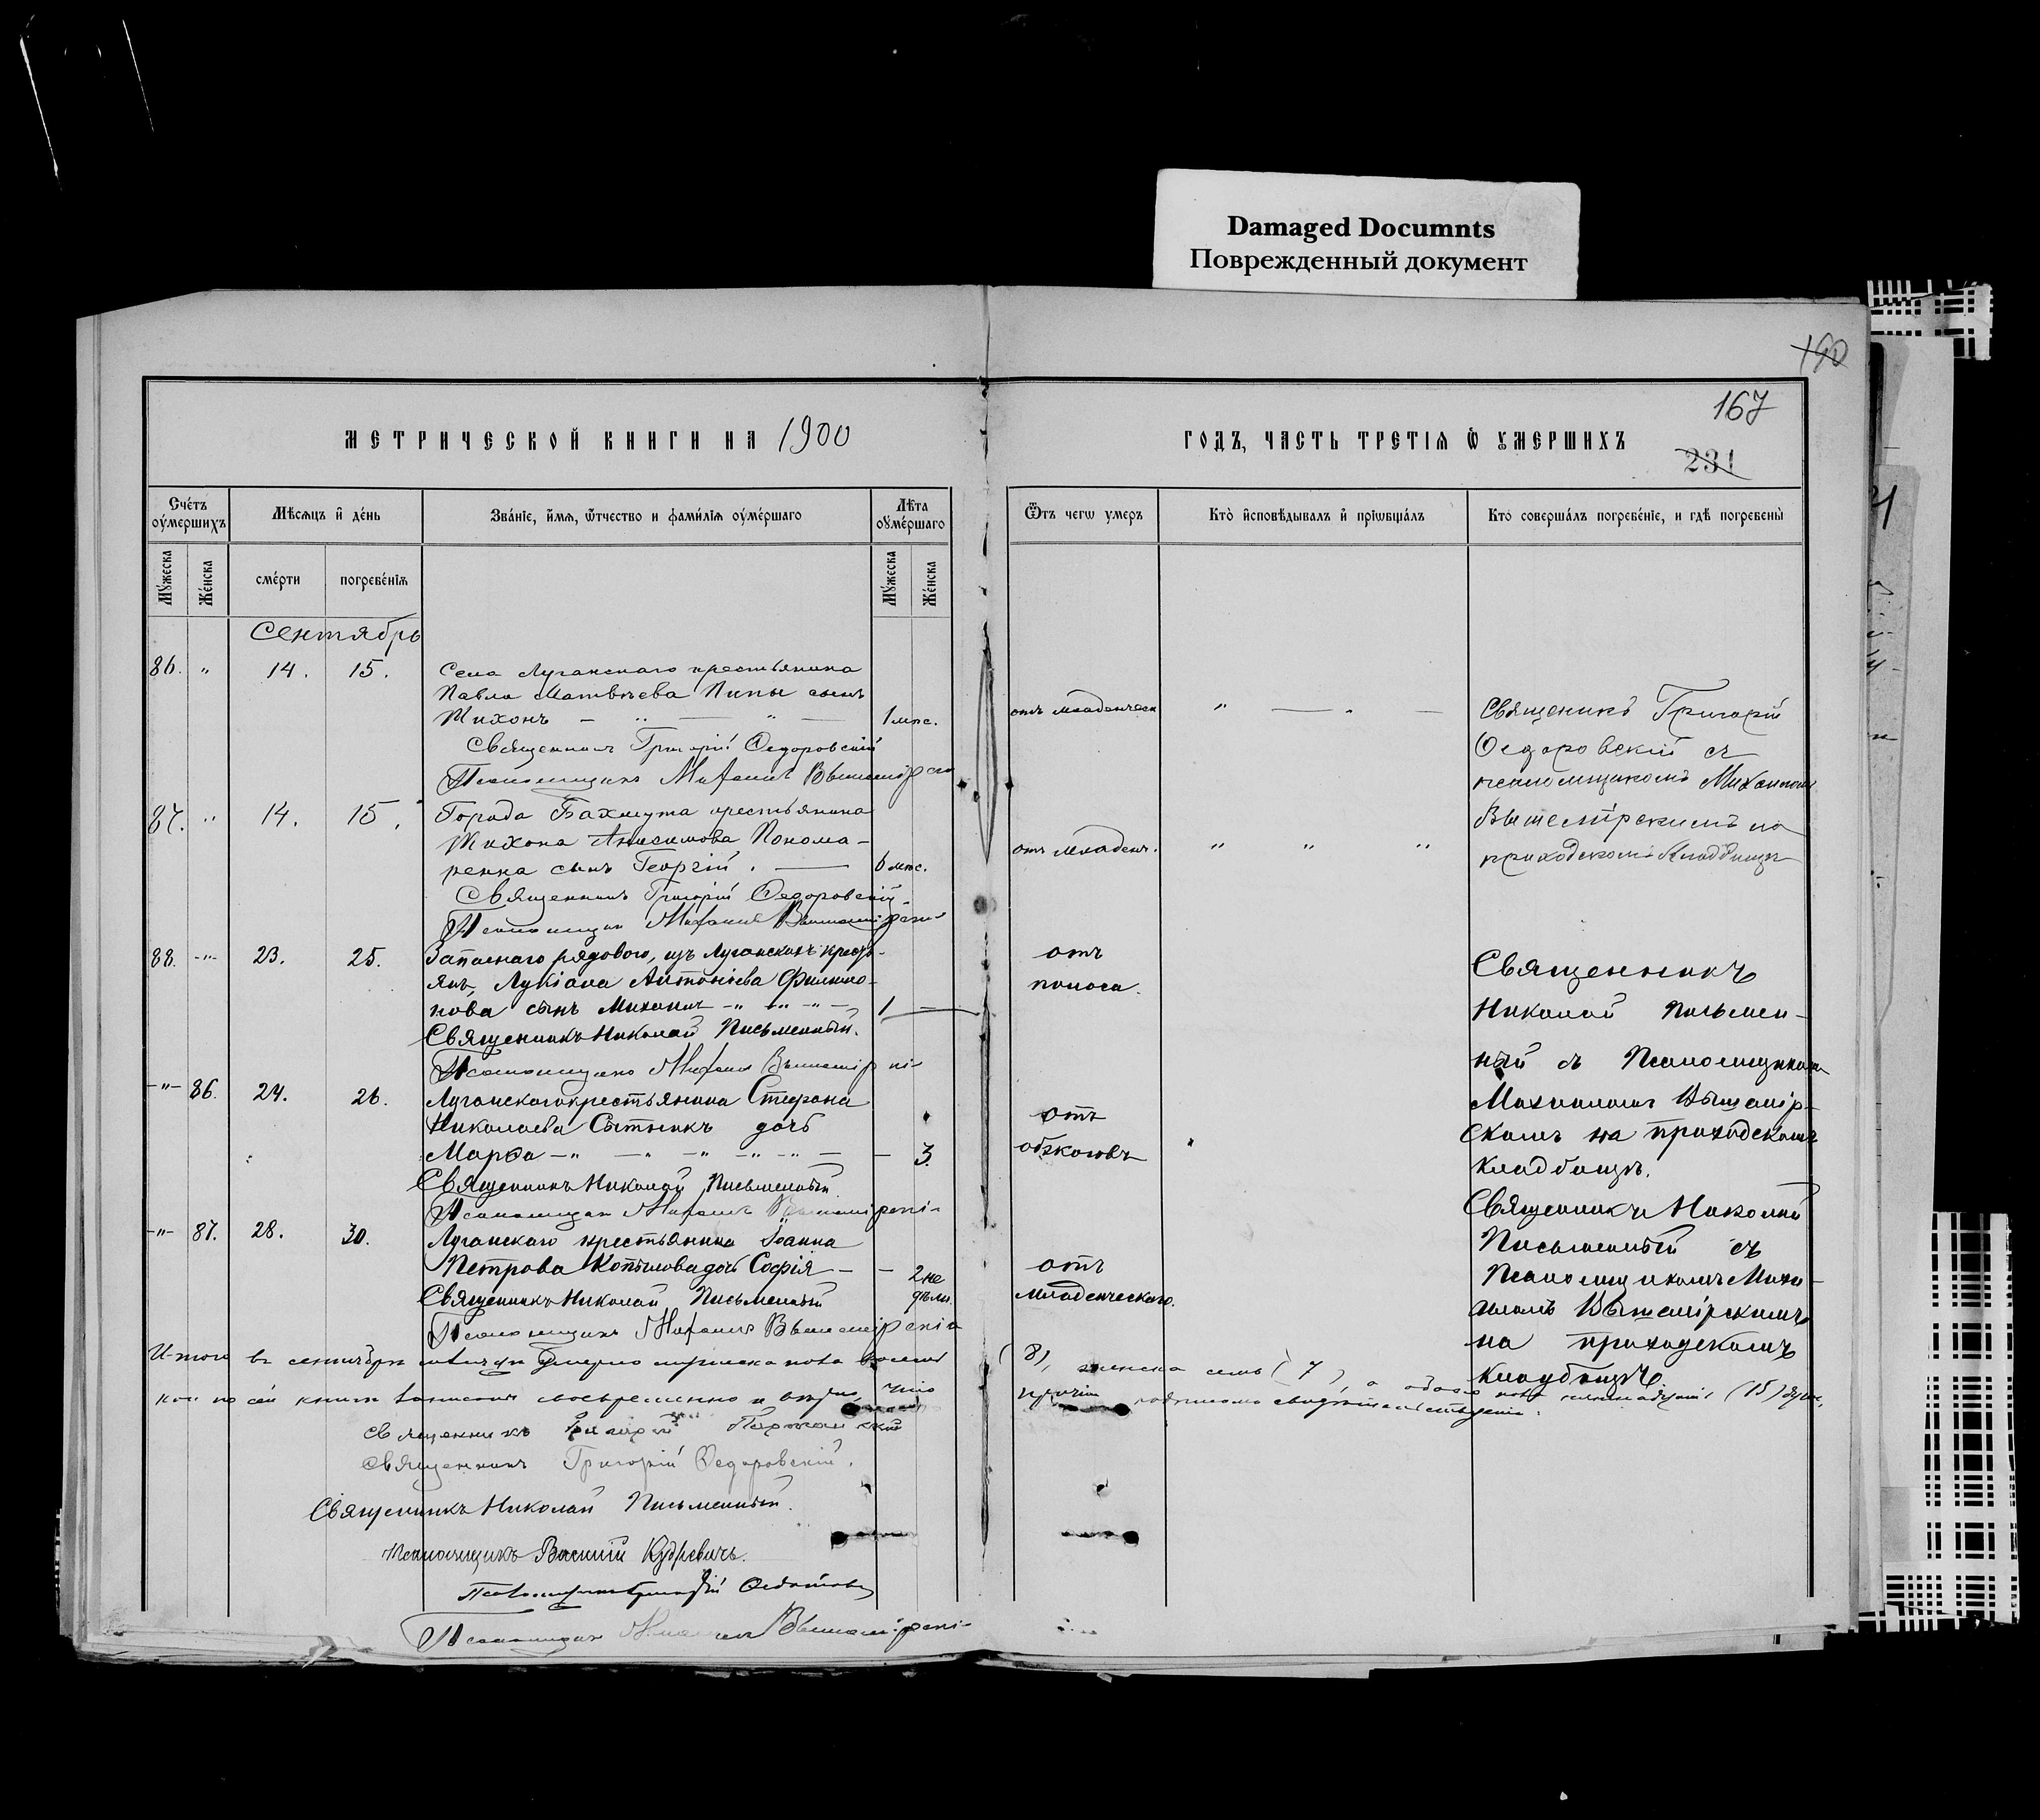 Damaged Documnts
Поврежденный документ
190
167
МЕТРИЧЕСКОЙ КНИГИ НА 1900
ГОДЪ, ЧАСТЬ ТРЕТІЯ Ѿ УМЕРШИХЪ
231
Счетъ оумершихъ
Мѣсяцъ и день
Званіе, имя, отчество и фамилія оумершаго
Лѣта оумершаго
Ѿтъ чегѡ умеръ
Кто исповѣдывалъ и пріѡбщалъ
Кто совершалъ погребеніе, и гдѣ погребены
Мужеска
Женска
смерти
погребенія
Мужеска
Женска
Сентябрь
86. " 14. 15. Села Луганскаго крестьянина
Павла Матвѣева Пипы сынъ
Тихонъ — " — " — 1 мѣс. отъ младенческ " — " —
Священникъ Григорій Ѳедоровскій
Псаломщикъ Михаилъ Вышемірскі
Священикъ Григорій
Ѳедоровскій съ
псаломщикомъ Михаиломъ
Вышемірскимъ на
приходскомъ Кладбищѣ
87. " 14. 15. Города Бахмута крестьянина
Тихона Анисимова Понома-
ренка сынъ Георгій. — 6 мѣс. отъ младенч. " " "
Священникъ Григорій Ѳедоровскій
Псаломщикъ Михаилъ Вышемірскі
88. -"- 23. 25. Запаснаго рядового, изъ Луганскихъ кресть-
янъ, Лукіана Антоніева Филимо-
нова сынъ Михаилъ -" -"- -"- 1 —
отъ
поноса.
Священникъ Николай Письменный.
Псаломщикъ Михаилъ Вышемірскі
Священникъ
Николай Письмен-
ный съ Псаломщикомъ
Михаиломъ Вышемір-
скимъ на приходскомъ
кладбищѣ.
-"- 86. 24. 26. Луганскаго крестьянина Стефана
Николаева Сытникъ дочь
Марѳа -" — -" -" -"- — — 3.
отъ
Священникъ Николай Письменный
Псаломщикъ Михаилъ Вышемірскі
-"- 87. 28. 30. Луганскаго крестьянина Іоанна
Петрова Копылова дочь Софія — — 2 не
дѣли.
отъ
младенческаго.
Священникъ Николай Письменный
Псаломщикъ Михаилъ Вышемірскій
Священникъ Николай
Письменный съ
Псаломщикомъ Миха-
иломъ Вышемірскимъ
на приходскомъ
кладбищѣ
Итого въ сентябрѣ мѣсяцѣ умерло мужеска пола восемь (8), женска семь (7), а обоего пола пятнадцать (15) душ,
кои по сей книгѣ записаны своевременно и вѣрно, что подписомъ свидѣтельствуемъ.
Священникъ Григорій
Священникъ Григорій Ѳедоровскій.
Священникъ Николай Письменный.
Псаломщикъ Василій Кудревичъ.
Псаломщикъ
Псаломщикъ Михаилъ Вышемірскі